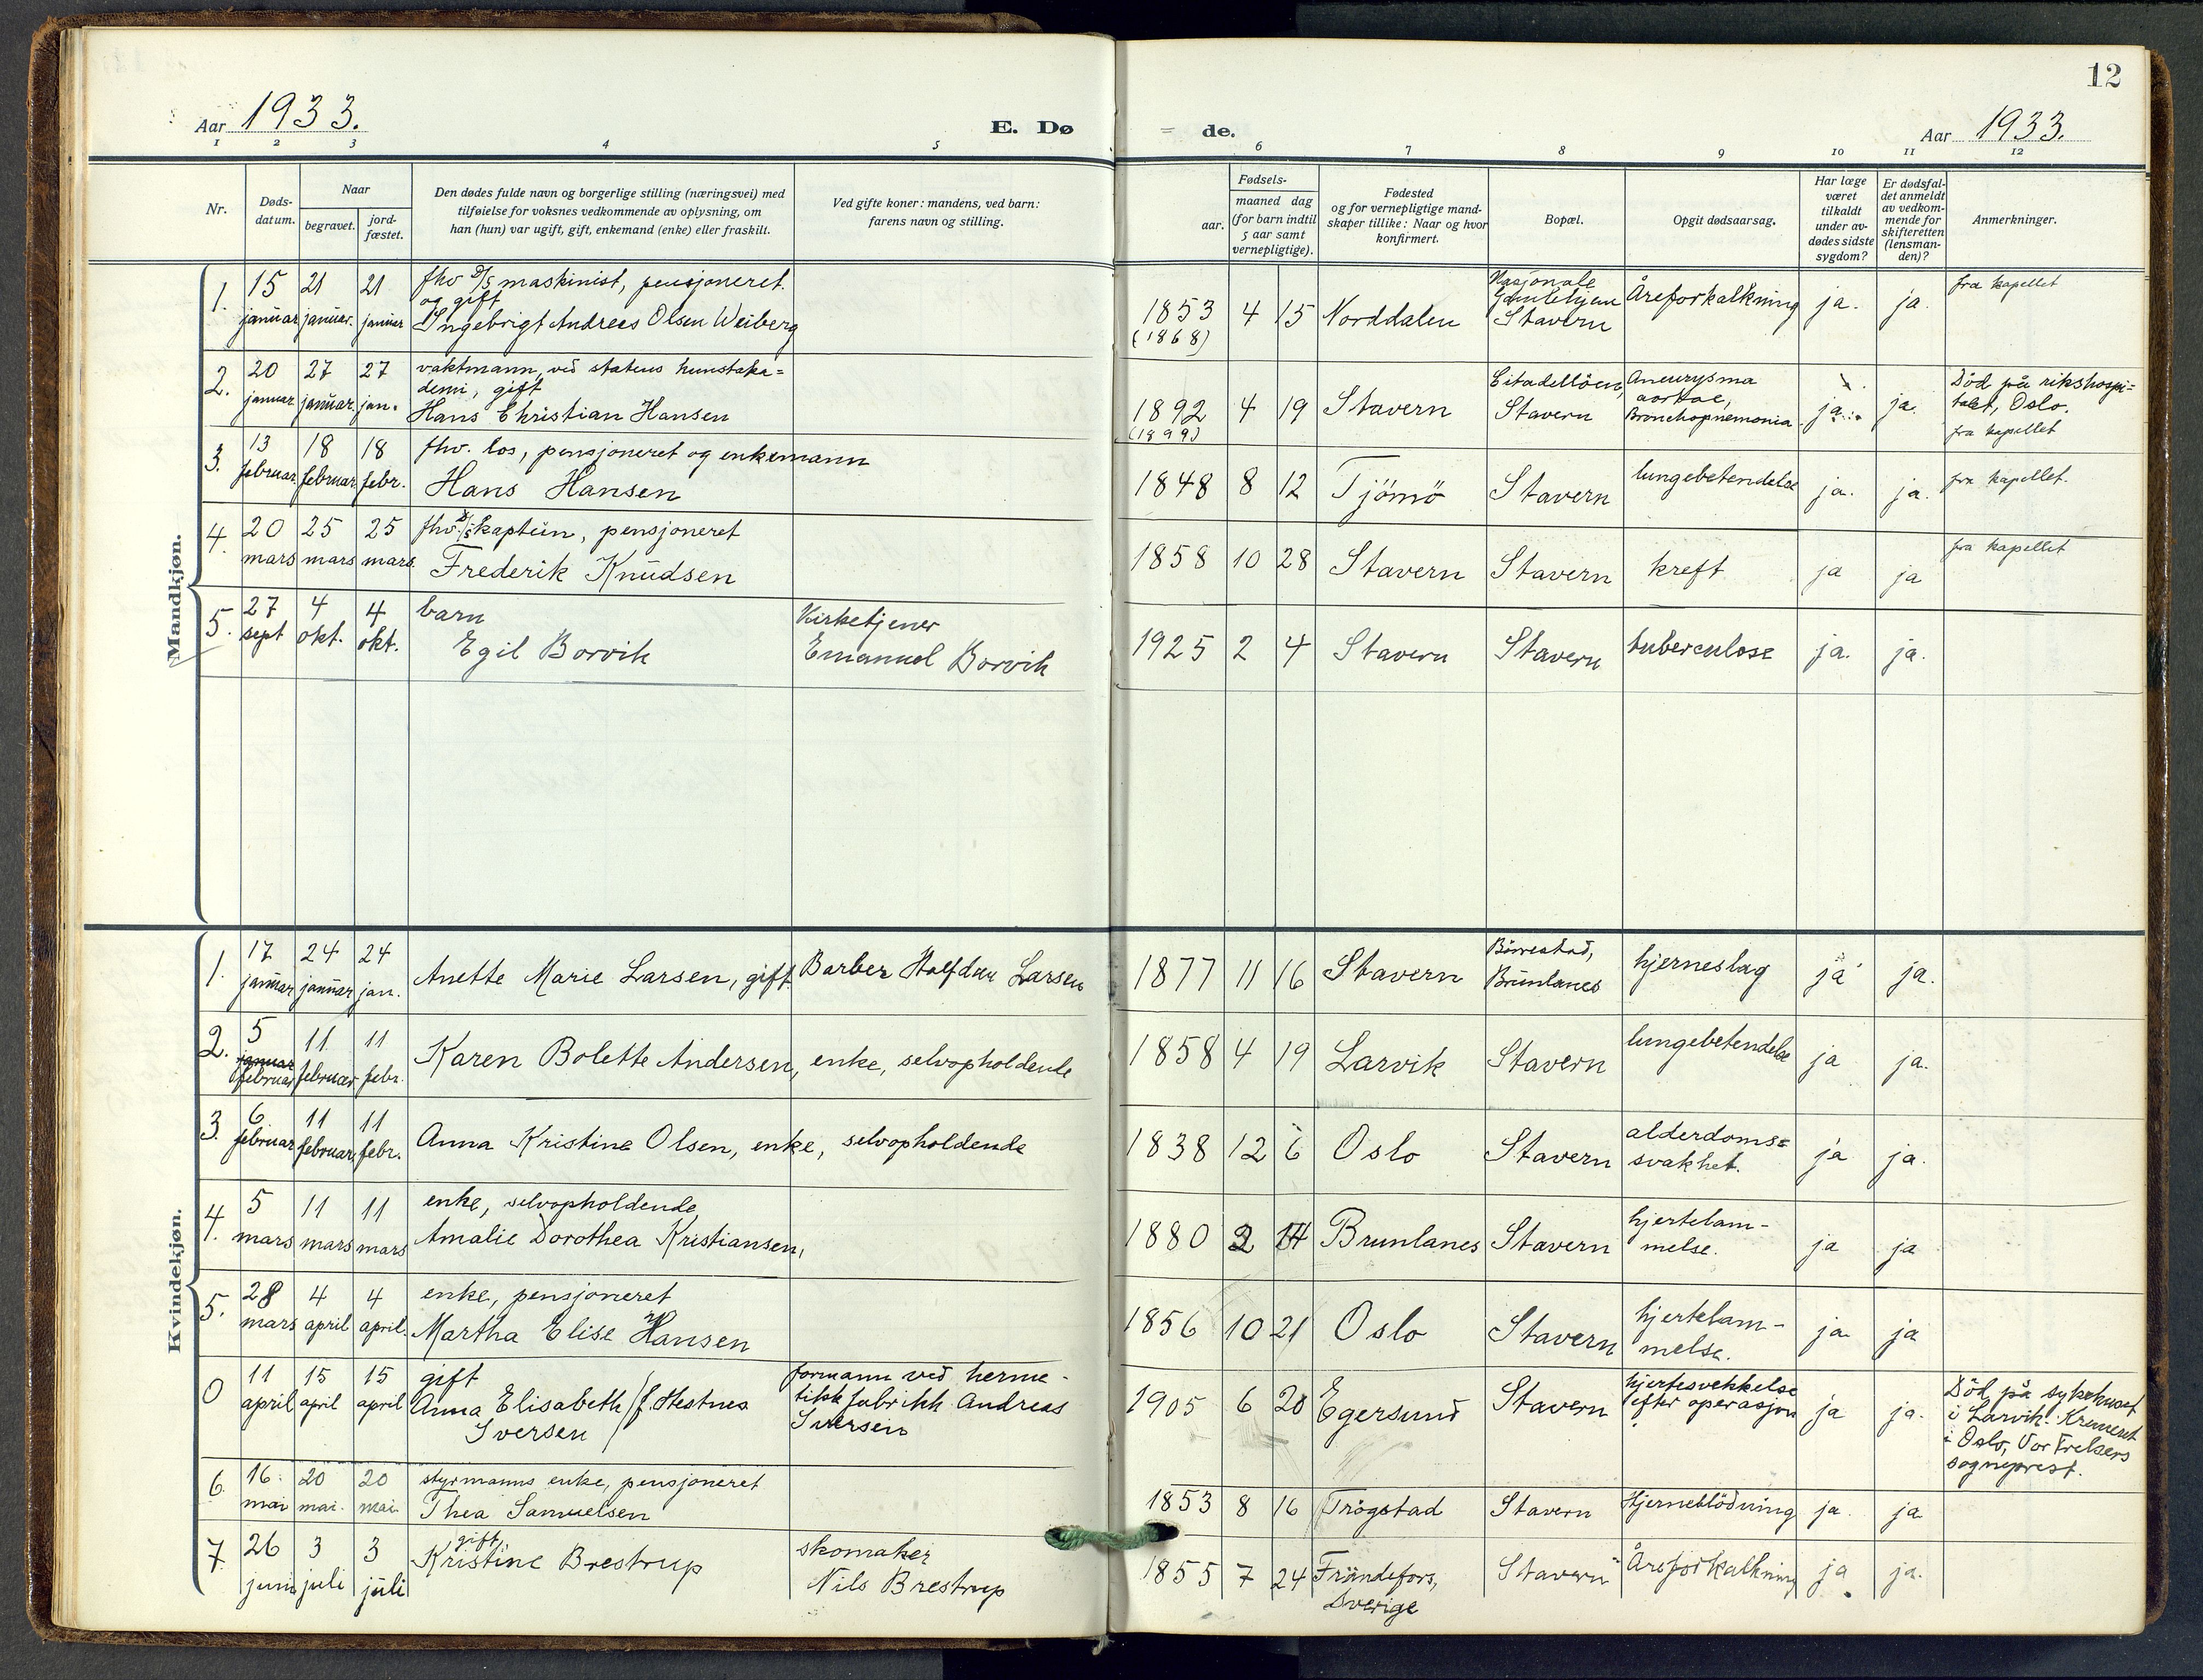 12
Aar 1933.
E. Dø
= de.
Aar 1933.
1 2 3 4 5 6 7 8 9 10 11 12
Nr.
Døds-
datum.
Naar
begravet.
jord-
fæstet.
Den dødes fulde navn og borgerlige stilling (næringsvei) med
tilføielse for voksnes vedkommende av oplysning, om
han (hun) var ugift, gift, enkemand (enke) eller fraskilt.
Ved gifte koner: mandens, ved barn:
farens navn og stilling.
Fødsels-
aar.
maaned dag
(for barn indtil
5 aar samt
vernepligtige).
Fødested
og for vernepligtige mand-
skaper tillike: Naar og hvor
konfirmert.
Bopæl.
Opgit dødsaarsag.
Har læge
været
tilkaldt
under av-
dødes sidste
sygdom?
Er dødsfal-
det anmeldt
av vedkom-
mende for
skifteretten
(lensman-
den)?
Anmerkninger.
Mandkjøn.
1. 15 januar 21 januar. 21 januar
fhv D/S maskinist, pensjoneret.
og gift
Ingebrigt Andreas Olsen Weiberg
1853 (1868) 4 15 Norddalen
Nasjonale
Gamlehjem
Stavern
Åreforkalkning ja. ja. fra kapellet
2. 20 januar 27 januar. 27 jan.
vaktmann, ved statens kunstaka=
demi, gift
Hans Christian Hansen
1892 (1899) 4 19 Stavern
Citadelløen,
Stavern
Aneurysma
aortae,
Bronchopnemonia. ja. ja.
Död på rikshospi=
talet, Oslo.
fra kapellet
3. 13 februar 18 februar. 18 febr.
fhv. los, pensjoneret og enkemann
Hans Hansen
1848 8 12 Tjömö Stavern lungebetendelse ja. ja. fra kapellet.
4. 20 mars 25 mars 25 mars.
fhv. D/S kaptein, pensjoneret
Frederik Knudsen
1858 10 28 Stavern Stavern kreft ja ja fra kapellet
5. 27 sept 4 okt. 4 okt.
barn
Egil Borvik
Kirketjener
Emanuel Borvik
1925 2 4 Stavern Stavern tuberculose ja. ja.
Kvindekjøn.
1. 17 januar 24 januar 24 jan.
Anette Marie Larsen, gift. Barber Halfdan Larsen
1877 11 16 Stavern
Börrestad,
Brunlanes
hjerneslag ja ja.
2. 5 januar februar 11 februar 11 febr.
Karen Bolette Andersen, enke, selvopholdende
1858 4 19 Larvik Stavern lungebetendelse ja ja.
3. 6 februar 11 februar. 11 febr.
Anna Kristine Olsen, enke, selvopholdende
1838 12 6 Oslo Stavern
alderdoms=
svakhet.
ja ja.
4. 5 mars 11 mars 11 mars
enke, selvopholdende,
Amalie Dorothea Kristiansen,
1880 2 14 Brunlanes Stavern
hjertelam-
melse.
ja ja
5. 28 mars 4 april 4 april.
enke, pensjoneret
Martha Elise Hansen
1856 10 21 Oslo Stavern
hjertelam-
melse.
ja ja
0 11 april 15 april 15 april
gift
Anna Elisabeth / f. Hestnes
Iversen
formann ved herme-
tikk fabrikk Andreas
Iversen
1905 6 20 Egersund Stavern
hjertesvekkelse
efter operasjon
ja ja.
Död på sykehuset
i Larvik. Kremert
i Oslo, Vor Frelsers
sogneprest.
6. 16. mai 20 mai. 20 mai
styrmanns enke, pensjoneret
Thea Samuelsen
1853 8 16 Trögstad Stavern Hjerneblödning ja. ja
7. 26 juni 3 juli 3 juli
gift,
Kristine Brestrup
skomaker
Nils Brestrup
1855 7 24
Frändefors,
Sverige
Stavern Åreforkalkning ja ja.